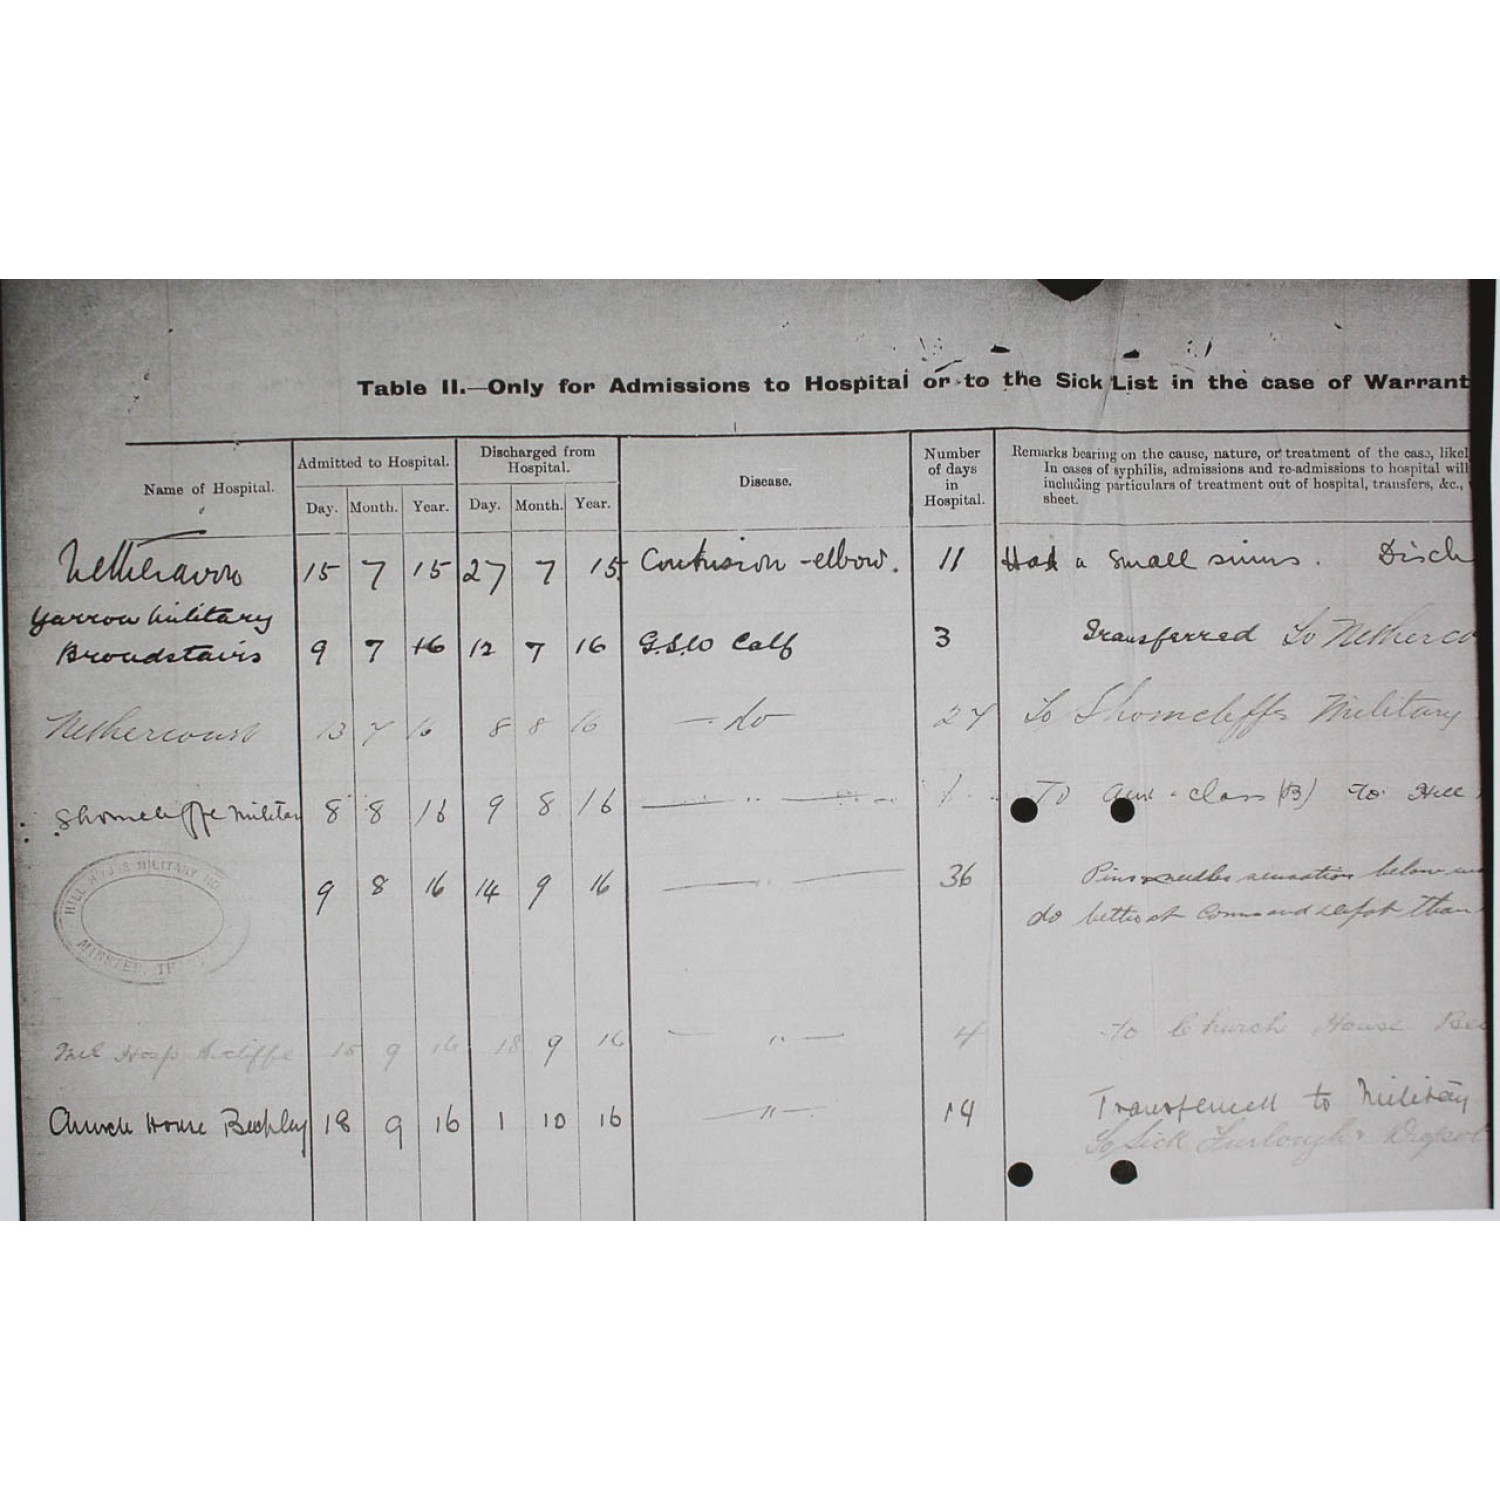 Table II.—Only for Admissions to Hospital or to the Sick List in the case of Warrant
Name of Hospital.
Admitted to Hospital.
Day. Month. Year.
Discharged from
Hospital.
Day. Month. Year.
Disease.
Number
of days
in
Hospital.
Remarks bearing on the cause, nature, or treatment of the case, likel
In cases of syphilis, admissions and re-admissions to hospital will
including particulars of treatment out of hospital, transfers, &c.,
sheet.
Netheravon 15 7 15 27 7 15 Contusion - elbow. 11 Had a small sinus. Disch
Yarrow Military
Broadstairs 9 7 16 12 7 16 G.S.W Calf 3 Transferred To Netherco
Nethercourt 13 7 16 8 8 16 — do — 27 To Shorncliffe Military
Shorncliffe Militar 8 8 16 9 8 16 — " — 1 To aux - class (B) to Hill
HILL HOUSE MILITARY HO
MINSTER, TH
9 8 16 14 9 16 — " — 36 Pins needles sensation below
do better at Command depot than
Mil Hosp 15 9 16 18 9 16 — " — 4 to Church House Bec
Church House 18 9 16 1 10 16 — " — 14 Transferred to Military
To Sick Furlough Depot